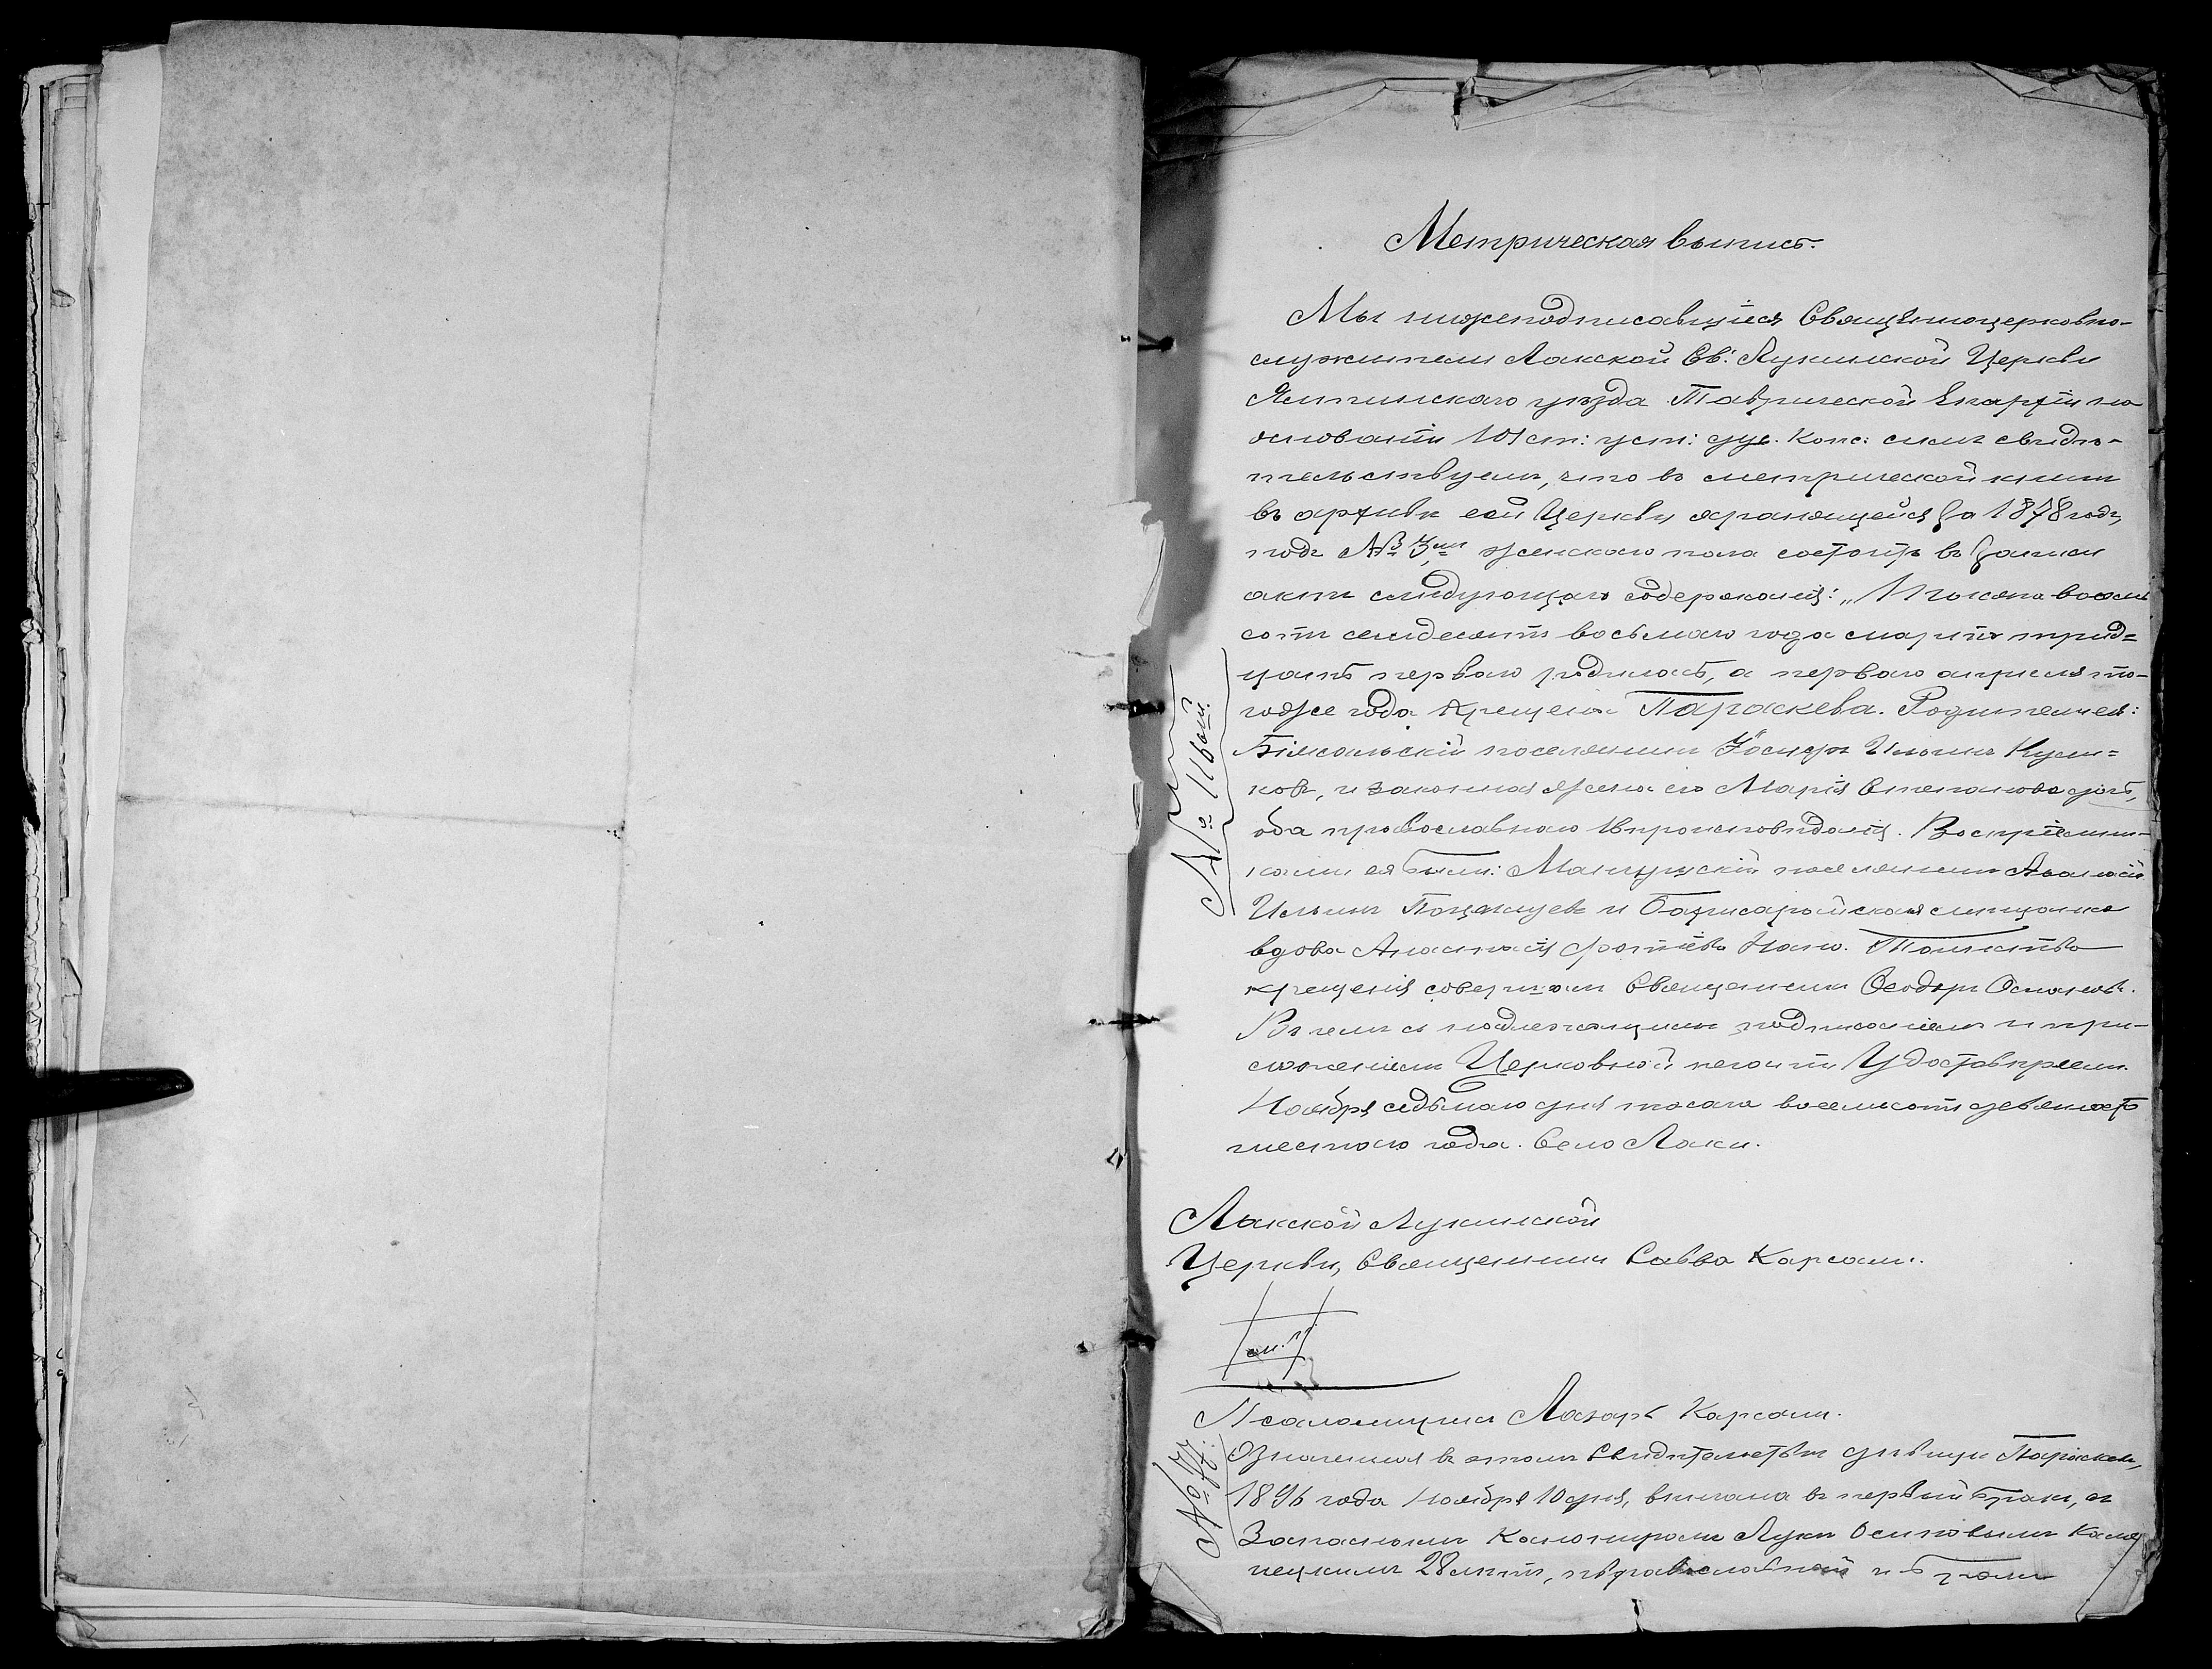 Метрическая выпись.
Мы нижеподписавшіеся Священоцерковно-
служители Лакской Св: Лукинской Церкви
Ялтинскаго уѣзда Таврической Епархіи на
основаніи 101 ст: уст: дух. Конс: симъ свидѣ-
тельствуемъ, что въ метрической книгѣ
въ архивѣ сей Церкви хранящейся за 1878 годъ,
подъ № 3мъ женскаго пола состоитъ въ записи
актъ слѣдующаго содержанія: „Тысяча восемь
сотъ семдесятъ восьмаго года марта трид=
цать перваго родилась, а перваго апрѣля то-
гоже года крещена Параскева. Родители ея:
Біясальскій поселянинъ Іосифъ Ильинъ
и законная жена его Марія Степанова дочь,
оба православнаго вѣроисповѣданія. Воспріемни-
ками ея были: Мангушскій поселянинъ Аѳанасій
Ильинъ и Бахчисарайская мѣщанка
вдова Анастасія Таинство
крещенія совершилъ Священникъ Ѳеодоръ
Въ чемъ съ надлежащимъ подписаніемъ и при-
ложеніемъ Церковной печати Удостовѣряемъ.
Ноября седьмаго дня тысяча восемьсотъ девяносто
шестаго года. Село Лаки.
№ 116
Лакской Лукинской
Церкви, Священникъ Савва Карсамъ.
м. п.
Псаломщикъ Лазарь Карсамъ.
Означенная въ этомъ Свидѣтельствѣ дѣвица Параскева,
1896 года Ноября 10 дня, вѣнчана въ первый бракъ, съ
Запаснымъ Лука Осиповымъ
28 лѣтъ, православный